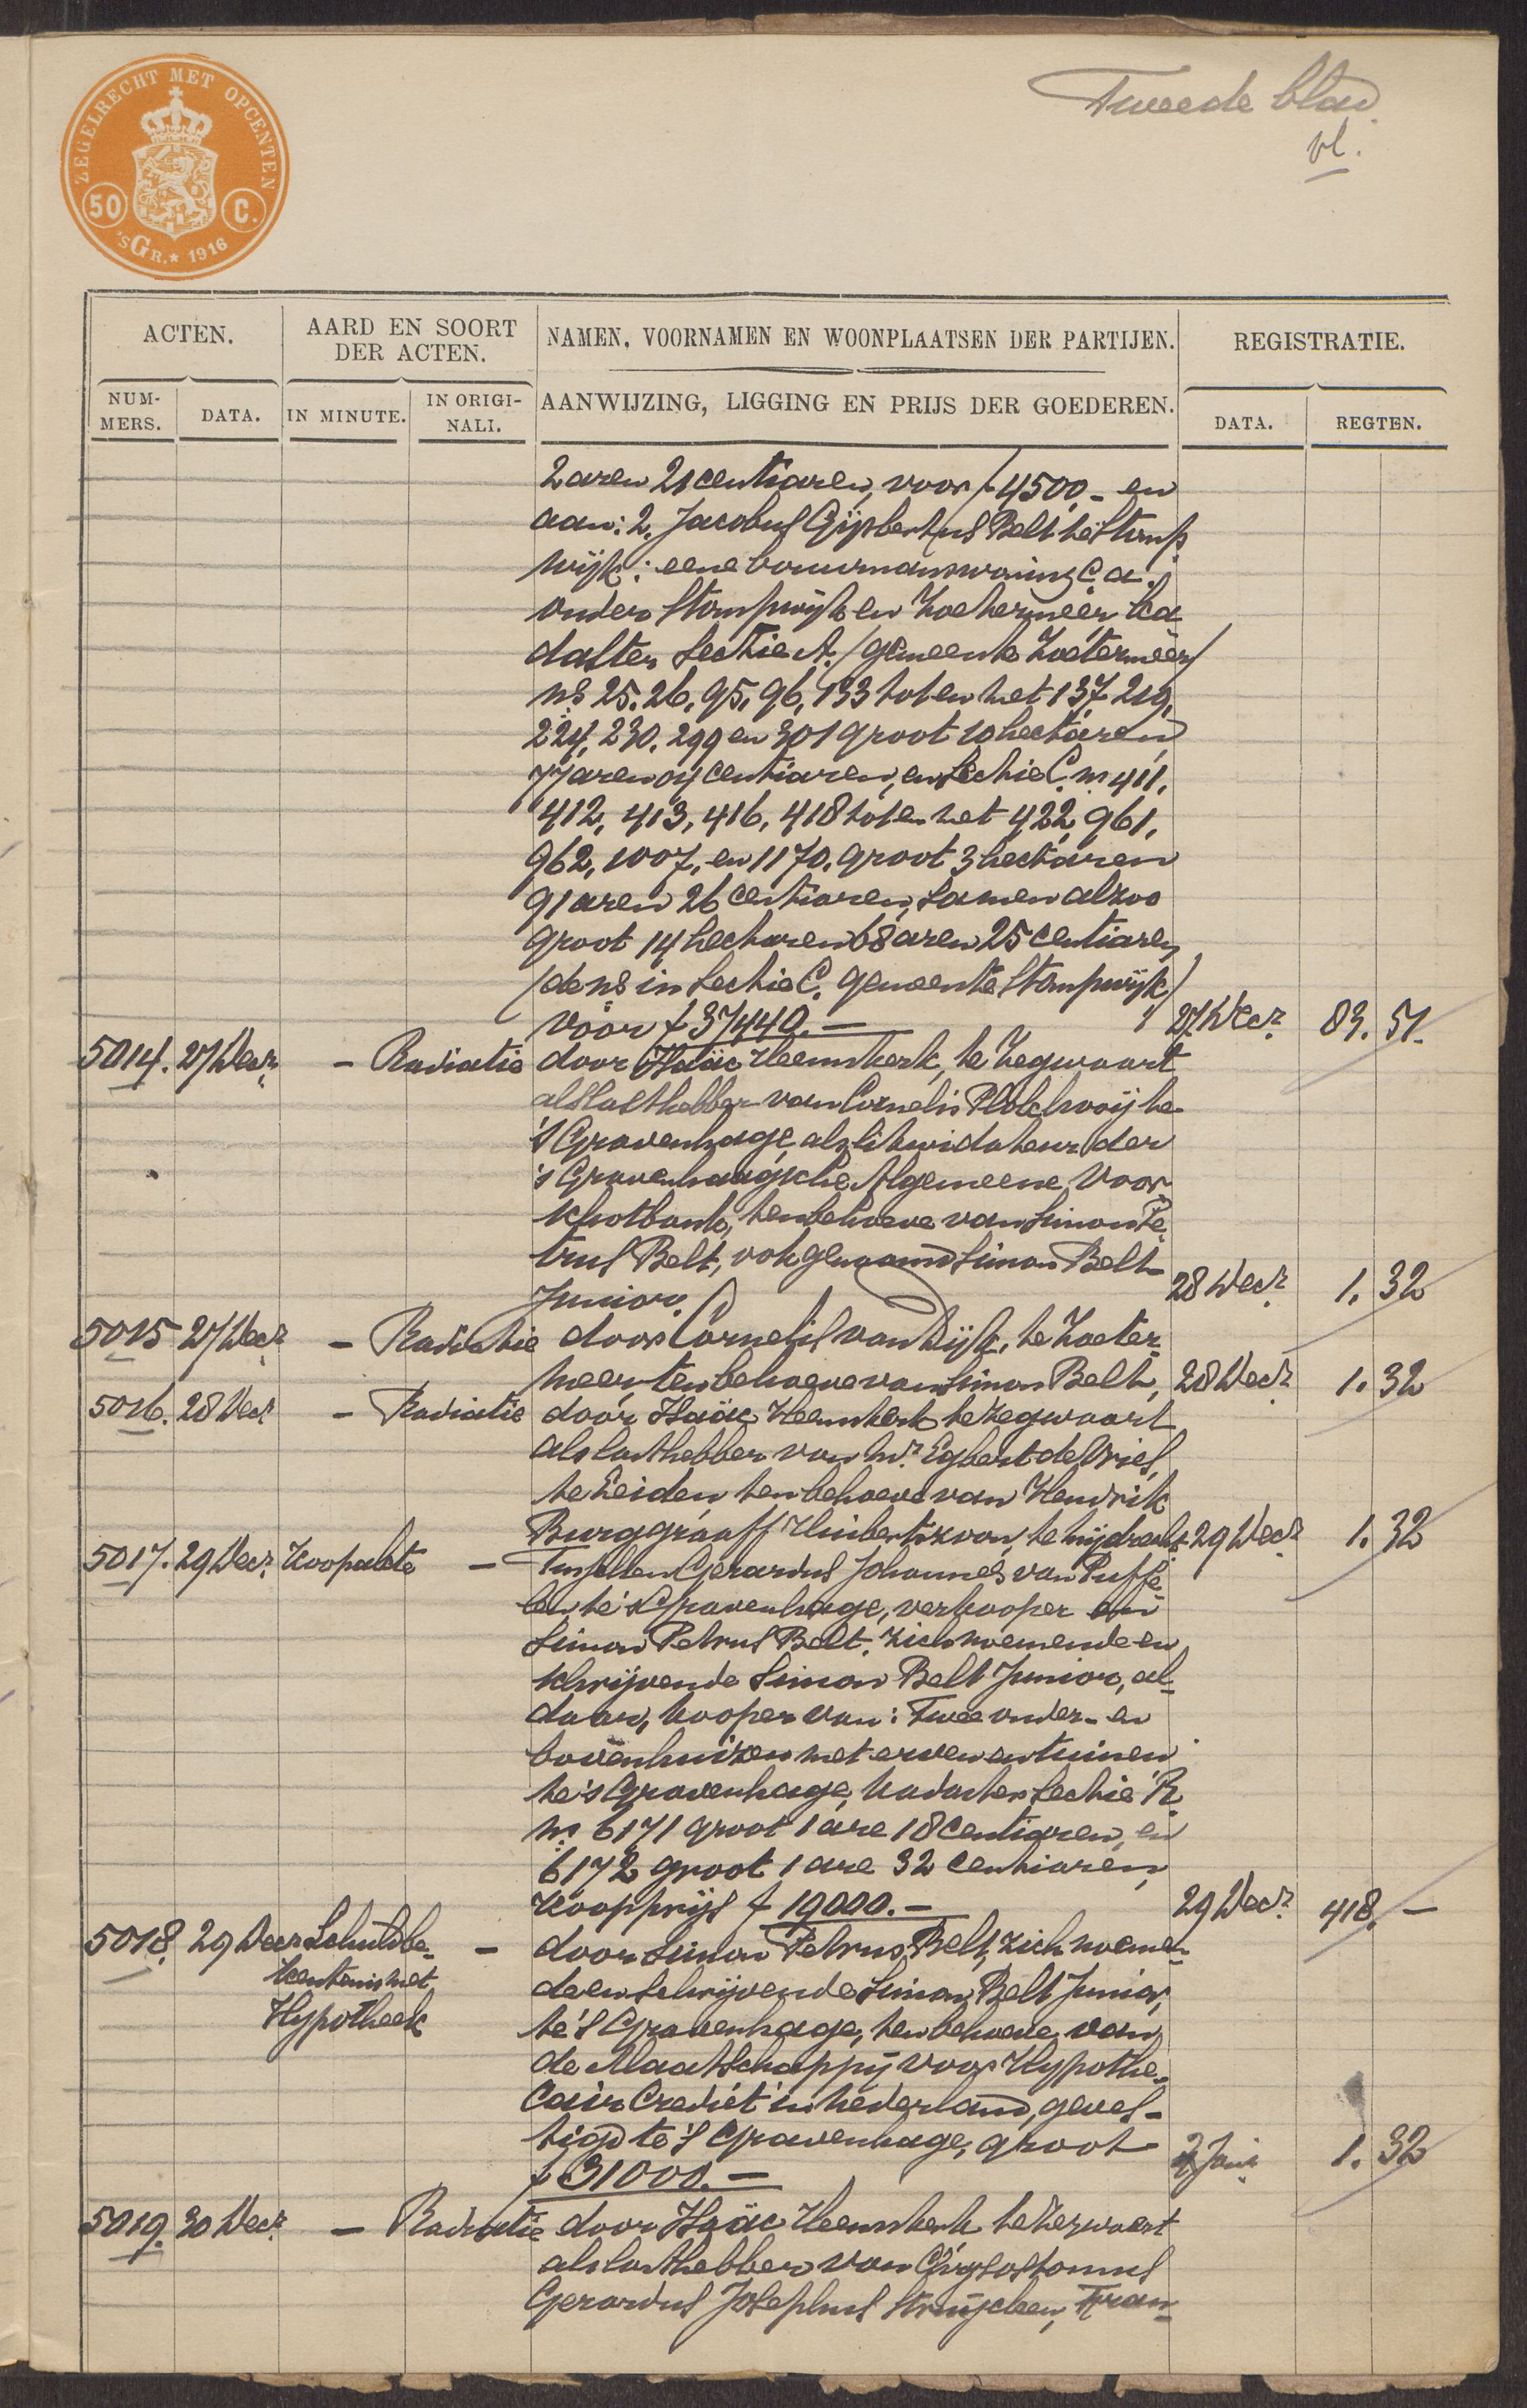 Tweede blad.
vl.
ZEGELRECHT MET OPCENTEN
50 C.
'sGR.* 1916
ACTEN.
AARD EN SOORT DER ACTEN.
NAMEN, VOORNAMEN EN WOONPLAATSEN DER PARTIJEN.
REGISTRATIE.
NUM-MERS.
DATA.
IN MINUTE.
IN ORIGI-NALI.
AANWIJZING, LIGGING EN PRIJS DER GOEDEREN.
DATA.
REGTEN.
2 aren 21 centiaren, voor f 4500.- en
aan: 2. Jacobus Gijsbertus Belt te Stomp
wijk: eene bouwmanswoning c.a.
onder Stompwijk en Zoetermeer ka
daster Sectie A. (gemeente Zoetermeer)
ns 25. 26, 95, 96, 133 tot en met 137, 219,
224, 230, 299 en 301 groot 10 hectaren
77 aren centiaren, en Sectie C. ns 411,
412, 413, 416, 418 tot en met 422, 961,
962, 1007, en 1170. groot 3 hectaren
91 aren 26 centiaren, samen alzoo
groot 14 hectaren 68 aren 25 centiaren
(de ns in Sectie C. gemeente Stompwijk)
voor f 37440.- 27 Decr. 83. 51.
5014. 27 Decr. - Radiatie door Isaäc Heemskerk, te Zegwaart
als lasthebber van Cornelis te
's Gravenhage, als likwidateur der
's Gravenhaagsche Algemeene Voor-
schotbank, ten behoeve van Simon Pe-
trus Belt, ook genaamd Simon Belt
Junior. 28 Decr. 1. 32
5015 27 Decr. - Radiatie door Cornelis van Dijk, te Zoeter-
meer, ten behoeve van Simon Belt, 28 Decr. 1. 32
5016. 28 Decr. - Radiatie door Isaäc Heemskerk te Zegwaart
als lasthebber van Mr. Egbert de Vries,
te Leiden ten behoeve van Hendrik
Burggraaff Huibertszoon, te Mijdrecht 29 Decr. 1. 32
5017. 29 Decr. Koopakte - Tusschen Gerardus Johannes van Puffe-
len te 's Gravenhage, verkooper en
Simon Petrus Belt. zich noemende en
schrijvende Simon Belt Junior, al-
daar, kooper van: Twee onder- en
bovenhuizen met erven en tuinen
te 's Gravenhage, kadaster Sectie R.
ns 6171 groot 1 are 18 centiaren, en
6172 groot 1 are 32 centiaren,
Koopprijs f 19000.- 29 Decr. 418. -
5018. 29 Decr. Schuldbe- - door Simon Petrus Belt, zich noemen-
kentenis met de en schrijvende Simon Belt Junior,
Hypotheek te 's Gravenhage, ten behoeve van
de Maatschappij voor Hypothe-
cair Crediet in Nederland, geves-
tigd te 's Gravenhage, groot
f 31000.- 2 Jani. 1. 32
5019. 30 Decr. - Radiatie door Isaäc Heemskerk te Zegwaart
als lasthebber van Chrysostomus
Gerardus Josephus Struycken, Fran-